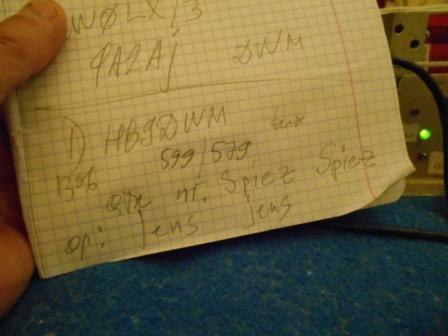 WØLX/3
9A2Aj DWM
1) HB9DWM tnx
1336 599/579
qth nr. Spiez Spiez
op: Jens jens